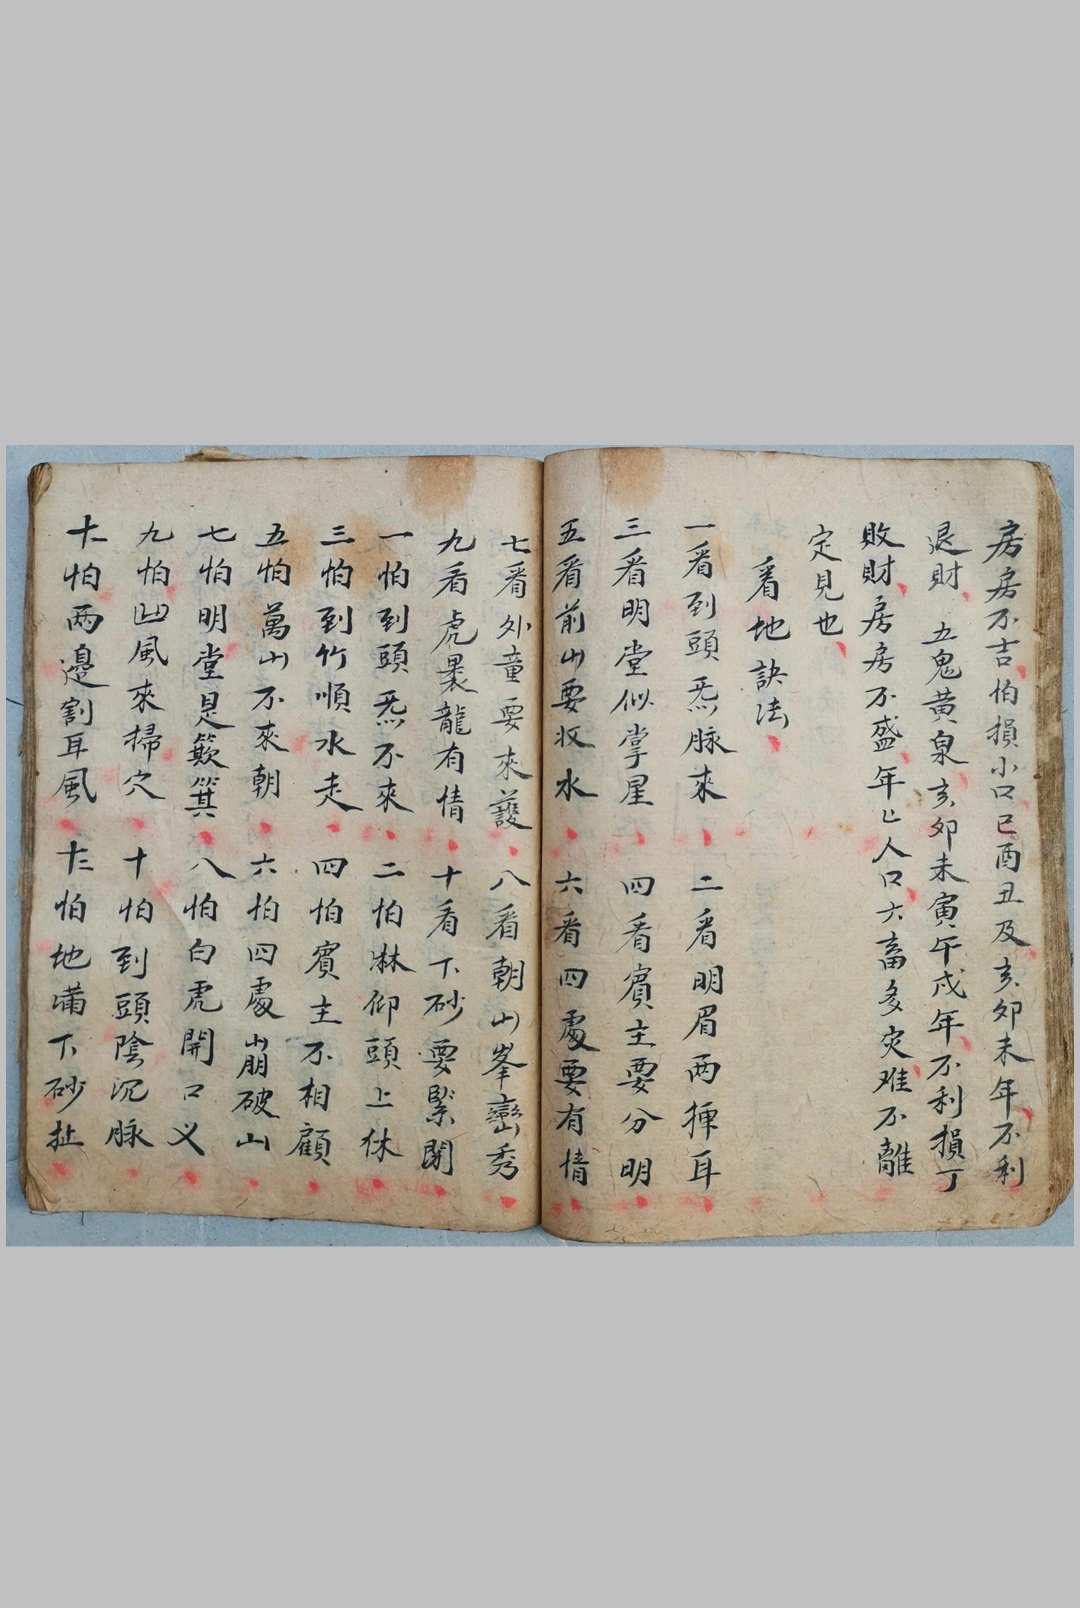 房房不吉怕損小口巳酉丑及亥卯未年不利
退財 五鬼黄泉亥卯未寅午戌年不利損丁
敗財房房不盛年上人口六畜多灾难不離
定見也
看地訣法
一看到頭炁脉來 二看明眉两揷耳
三看明堂似掌星 四看賓主要分明
五看前山要收水 六看四處要有情
七看外童要來護 八看朝山峯巒秀
九看虎暴龍有情 十看下砂要緊閉
一怕到頭炁不來 二怕淋仰頭上休
三怕到竹順水走 四怕賓主不相顧
五怕萬山不來朝 六怕四處崩破山
七怕明堂是簸箕 八怕白虎開口义
九怕凹風來掃穴 十怕到頭陰沉脉
十一怕两邊割耳風 十二怕地滿下砂扯